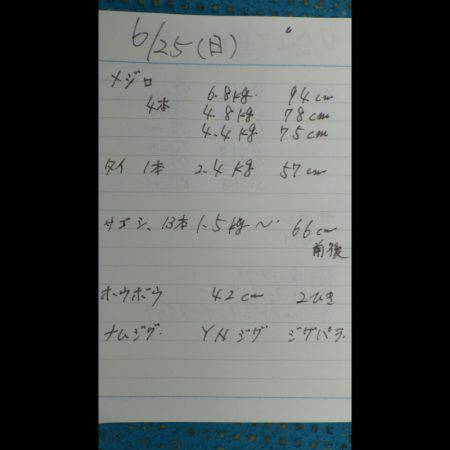 6/25(日)
メジロ
6.8kg 94cm
4本 4.8kg 78cm
4.4kg 75cm
タイ 1本 2.4kg 57cm
サゴシ、13本 1.5kg〜 66cm
前後
ホウボウ 42cm 2ひき
ナムジグ YHジグ ジグパラ